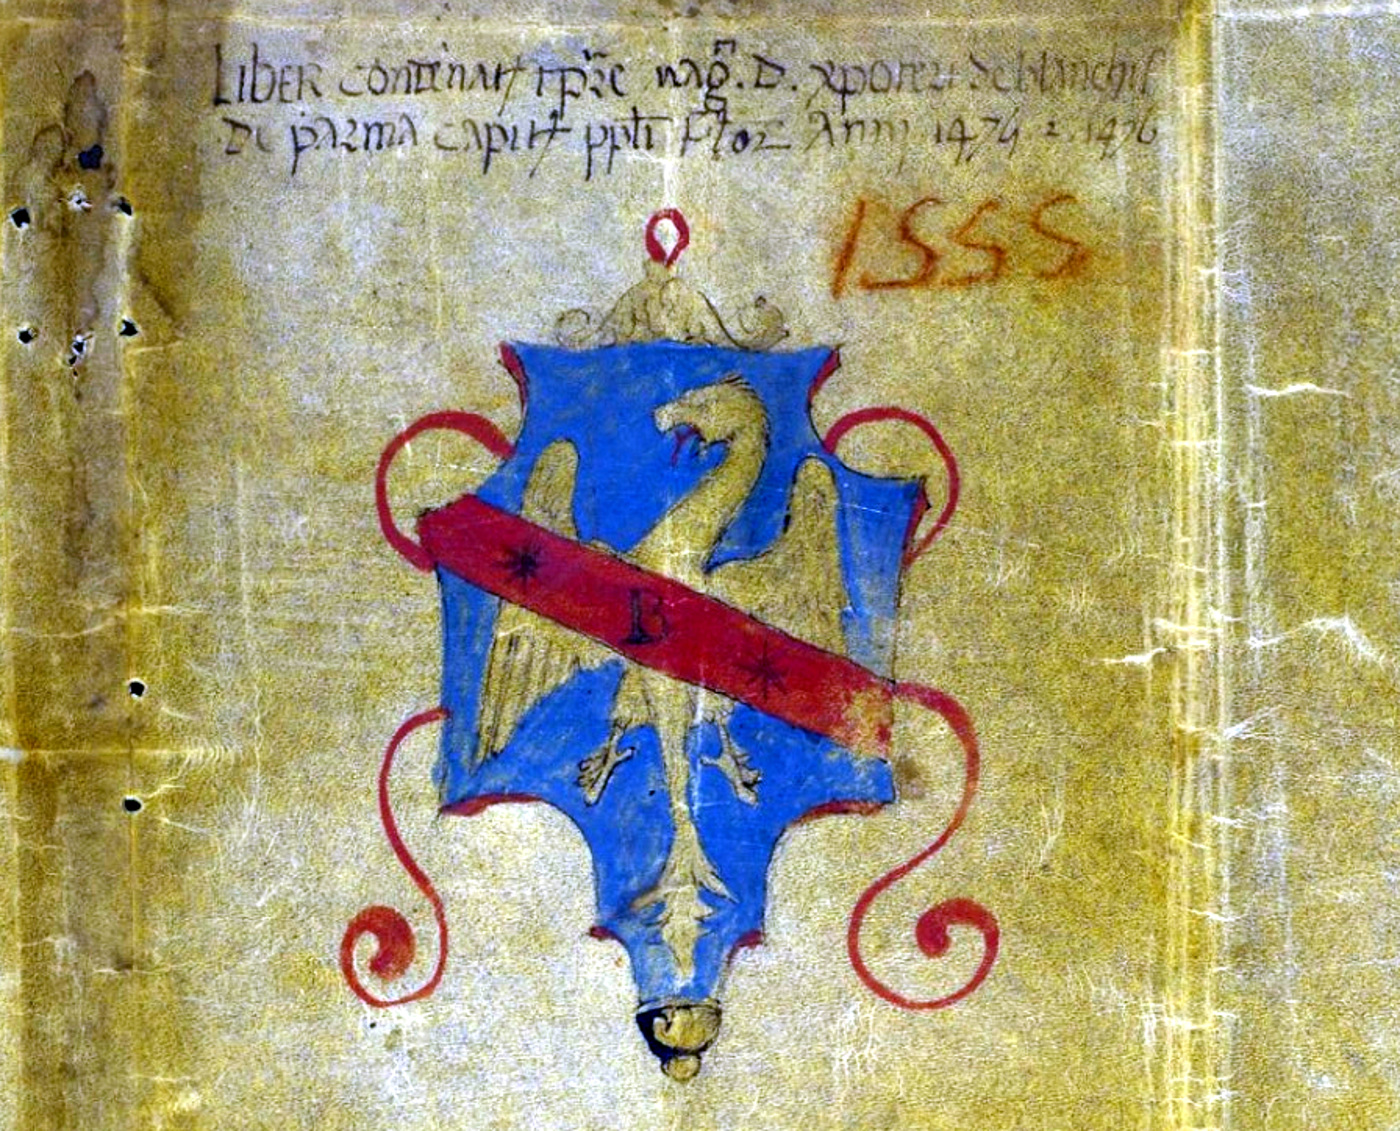 LIBER contēnaɼ tp̄re mag̃. D. xpofeɼ de blanchis
De parma capit ppli Floɼ Anni 1474 2 1476
1555
B